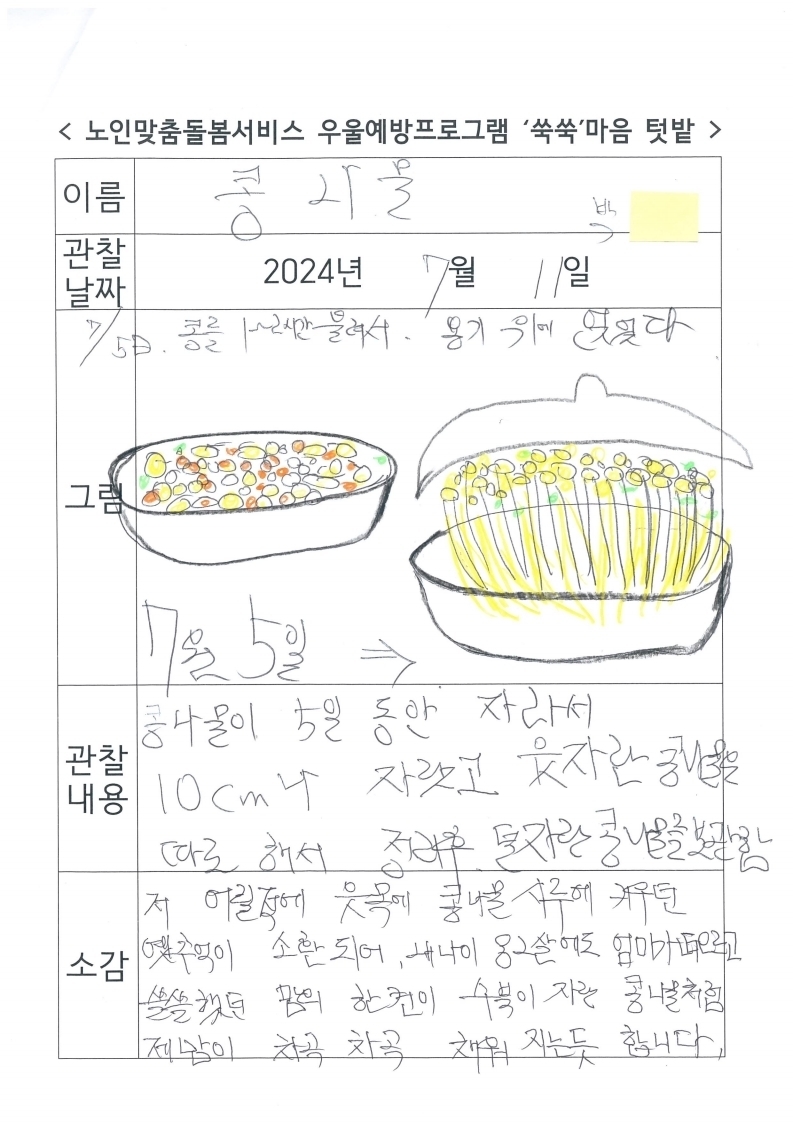 < 노인맞춤돌봄서비스 우울예방프로그램 '쑥쑥'마음 텃밭 >
이름 콩 나물 박
관찰 날짜 2024년 7월 11일
7/5일. 콩을 불려서. 용기 위에
그림
7월 5일 ⇒
관찰 내용
콩나물이 5일 동안 자라서
10cm나 자랐고 웃자란 콩나물은
따로 해서 덜자란 콩나물을 보관함
소감
저 어릴적에 윗목에 콩나물 시루에 키우던
옛추억이 소환되어, 내나이 에도 엄마가 떠오르고
쓸쓸했던 맘의 한켠이 수북이 자란 콩나물처럼
제맘이 차곡 차곡 채워 지는듯 합니다.